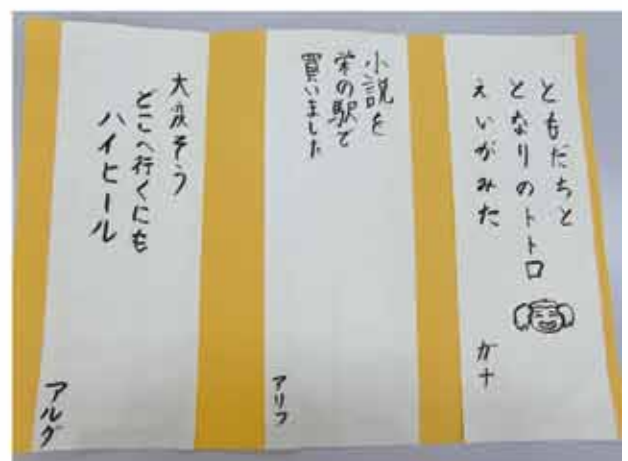 ともだちと
となりのトトロ
えいがみた
ガナ
小説を
栄の駅で
買いました
アリフ
大変そう
どこへ行くにも
ハイヒール
アルグ